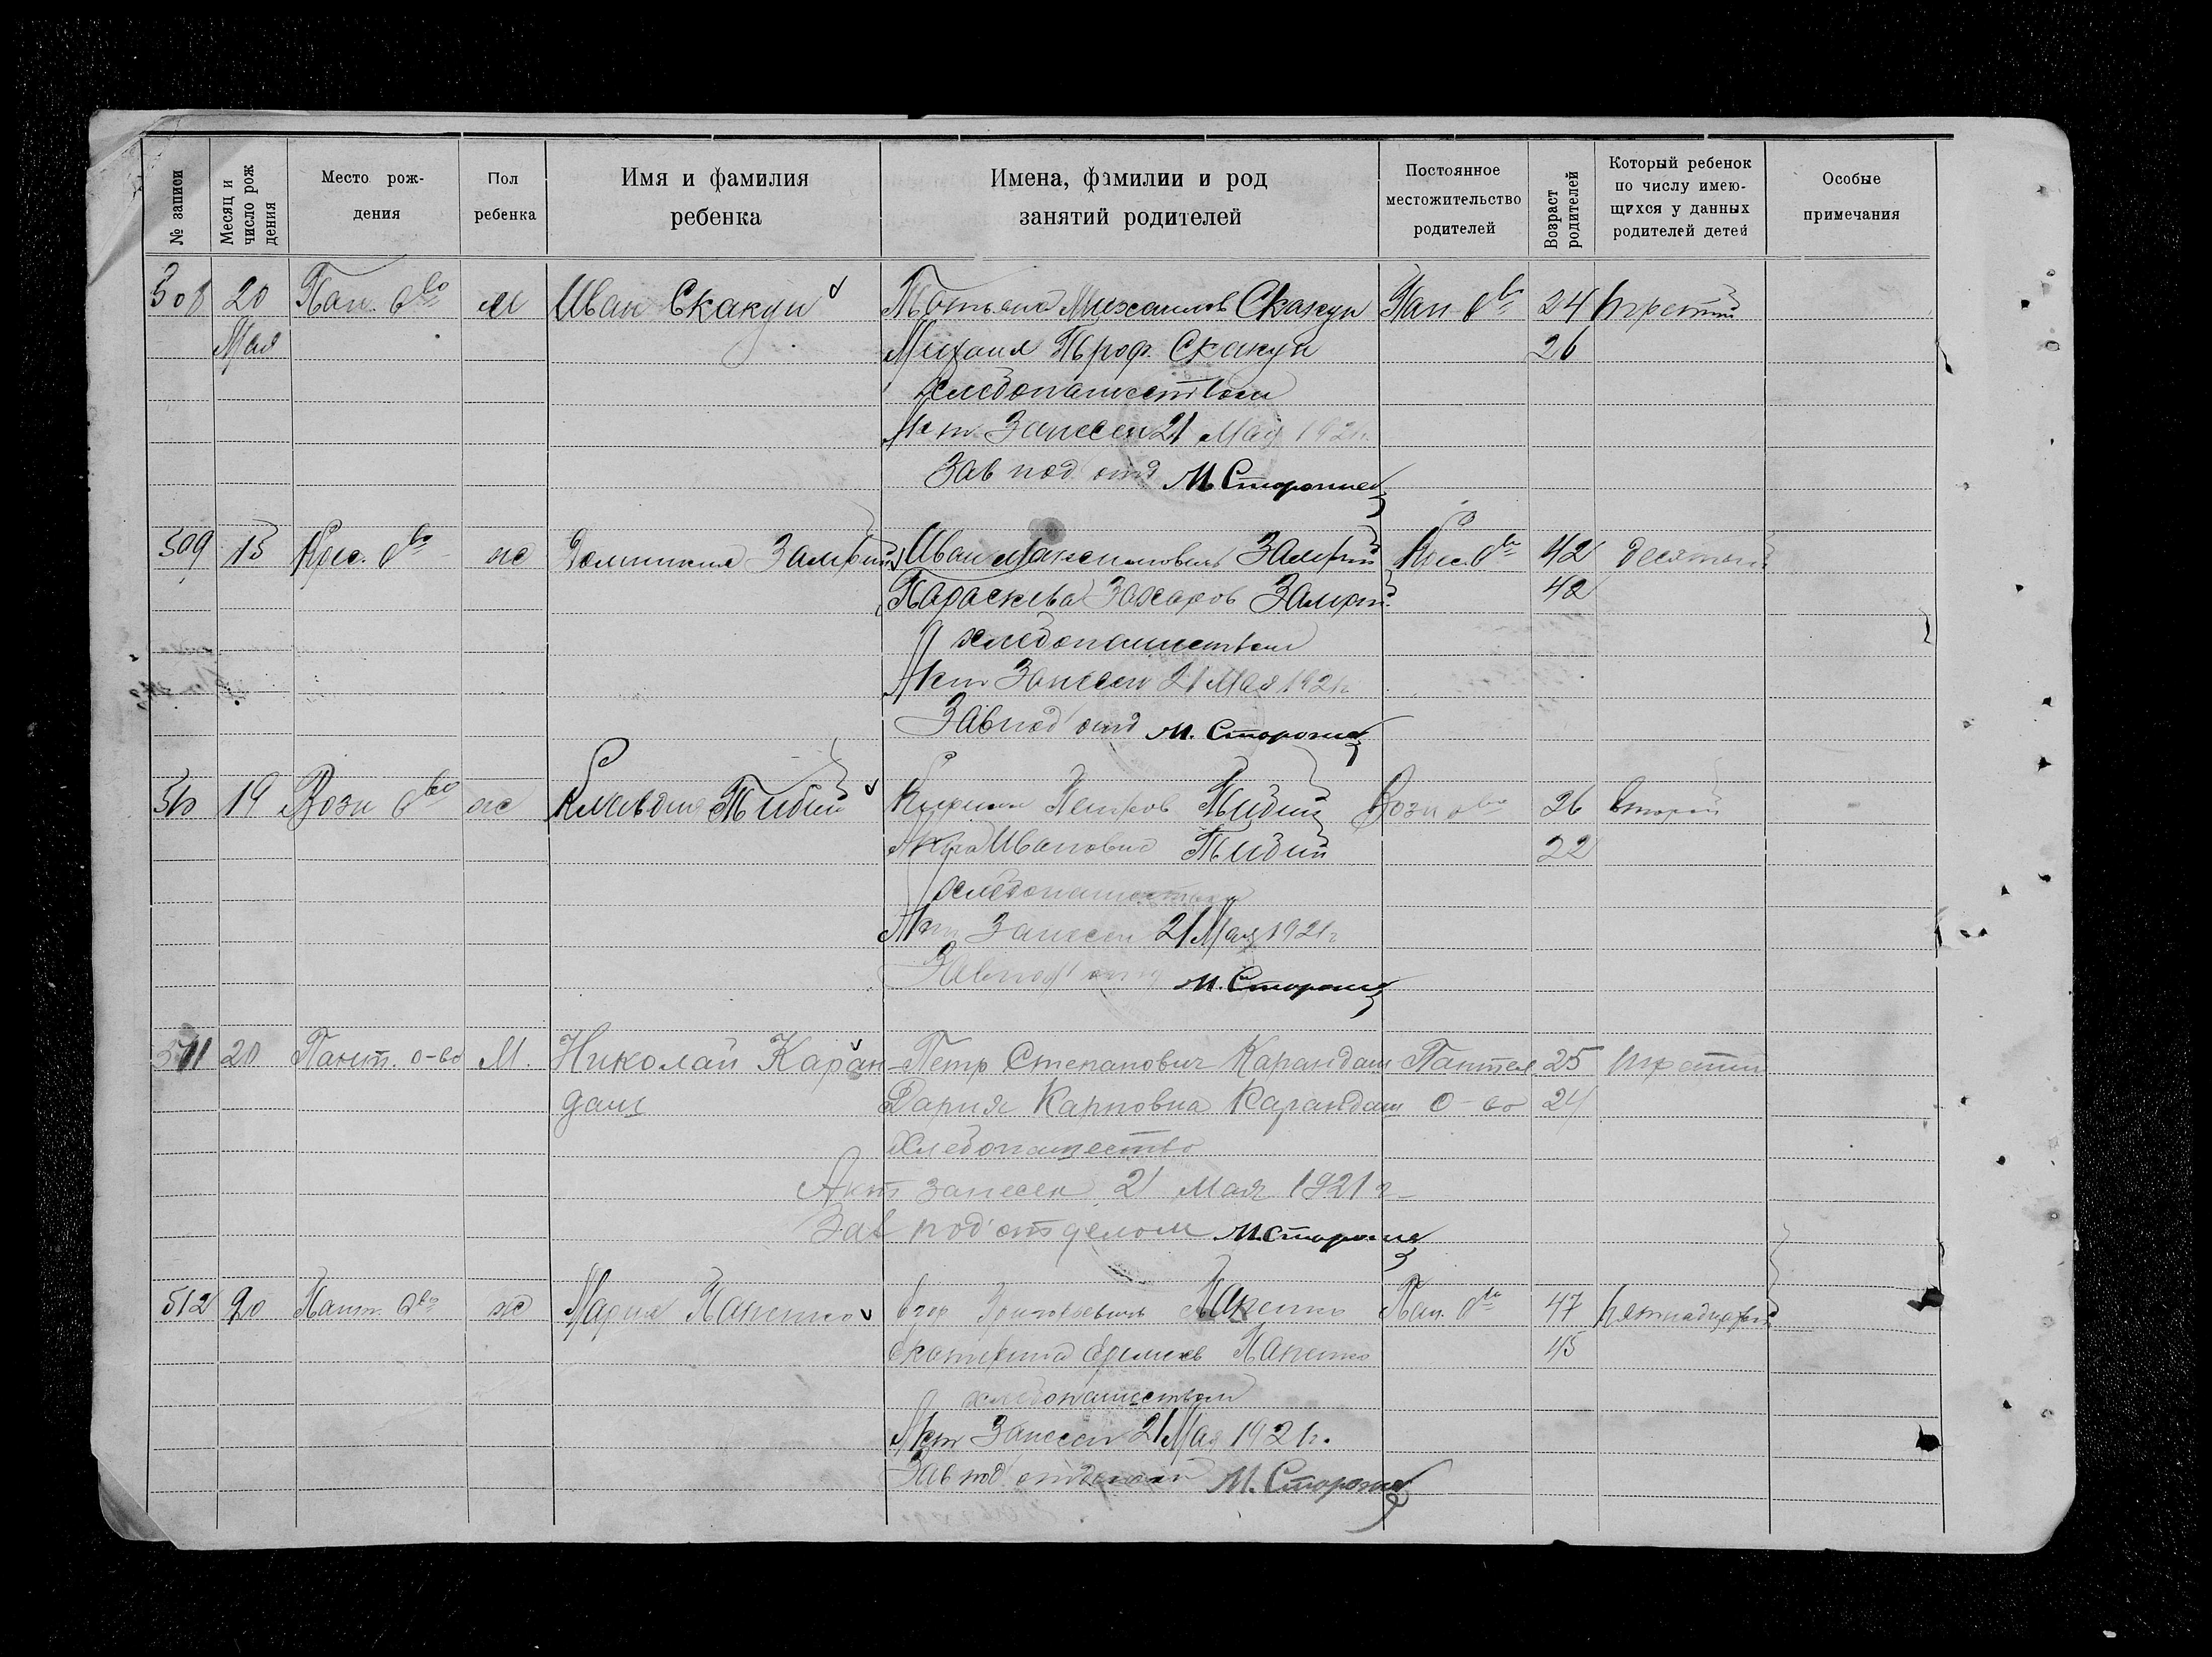 № записи
Месяц и
число рож
дения
Место рож-
дения
Пол
ребенка
Имя и фамилия
ребенка
Имена, фамилии и род
занятий родителей
Постоянное
местожительство
родителей
Возраст
родителей
Который ребенок
по числу имею-
щихся у данных
родителей детей
Особые
примечания
508 20 Пан. о-во м Иван Скакун Михаилов Скакун Пан о-во 24 третий
Мая Михаил Проф. Скакун 26
хлебопашеством
Акт Занесен 21 Мая 1921г.
Зав под отд М. Стороже
509 15 Крес. о-во ж Замрий Иван Максимович Замрий Крес. о-во 42 десятый
Параскева Захаров Замрий 42
хлебопашеством
Акт Занесен 21 Мая 1921г
Зав под отд М. Стороже
510 19 Возн о-во ж Клавдия Возн о-во 26 второй
Петров
Ивановна 22
хлебопашеством
Акт Занесен 21 Мая 1921г
Зав под отд М. Стороже
511 20 Пант. о-во М. Николай Каран Петр Степанович Карандаш Пантел 25 третий
даш Дария Карповна Карандаш о-во 24
хлебопашество
Акт занесен 21 Мая 1921 г
Зав под'отделом М. Стороже
512 20 Пант. о-во ж Мария Григорьевич Пан. о-во 47 пятнадцатый
Екатерина 45
хлебопашеством
Акт Занесен 21 Мая 1921г.
Зав под. отделом М. Стороже